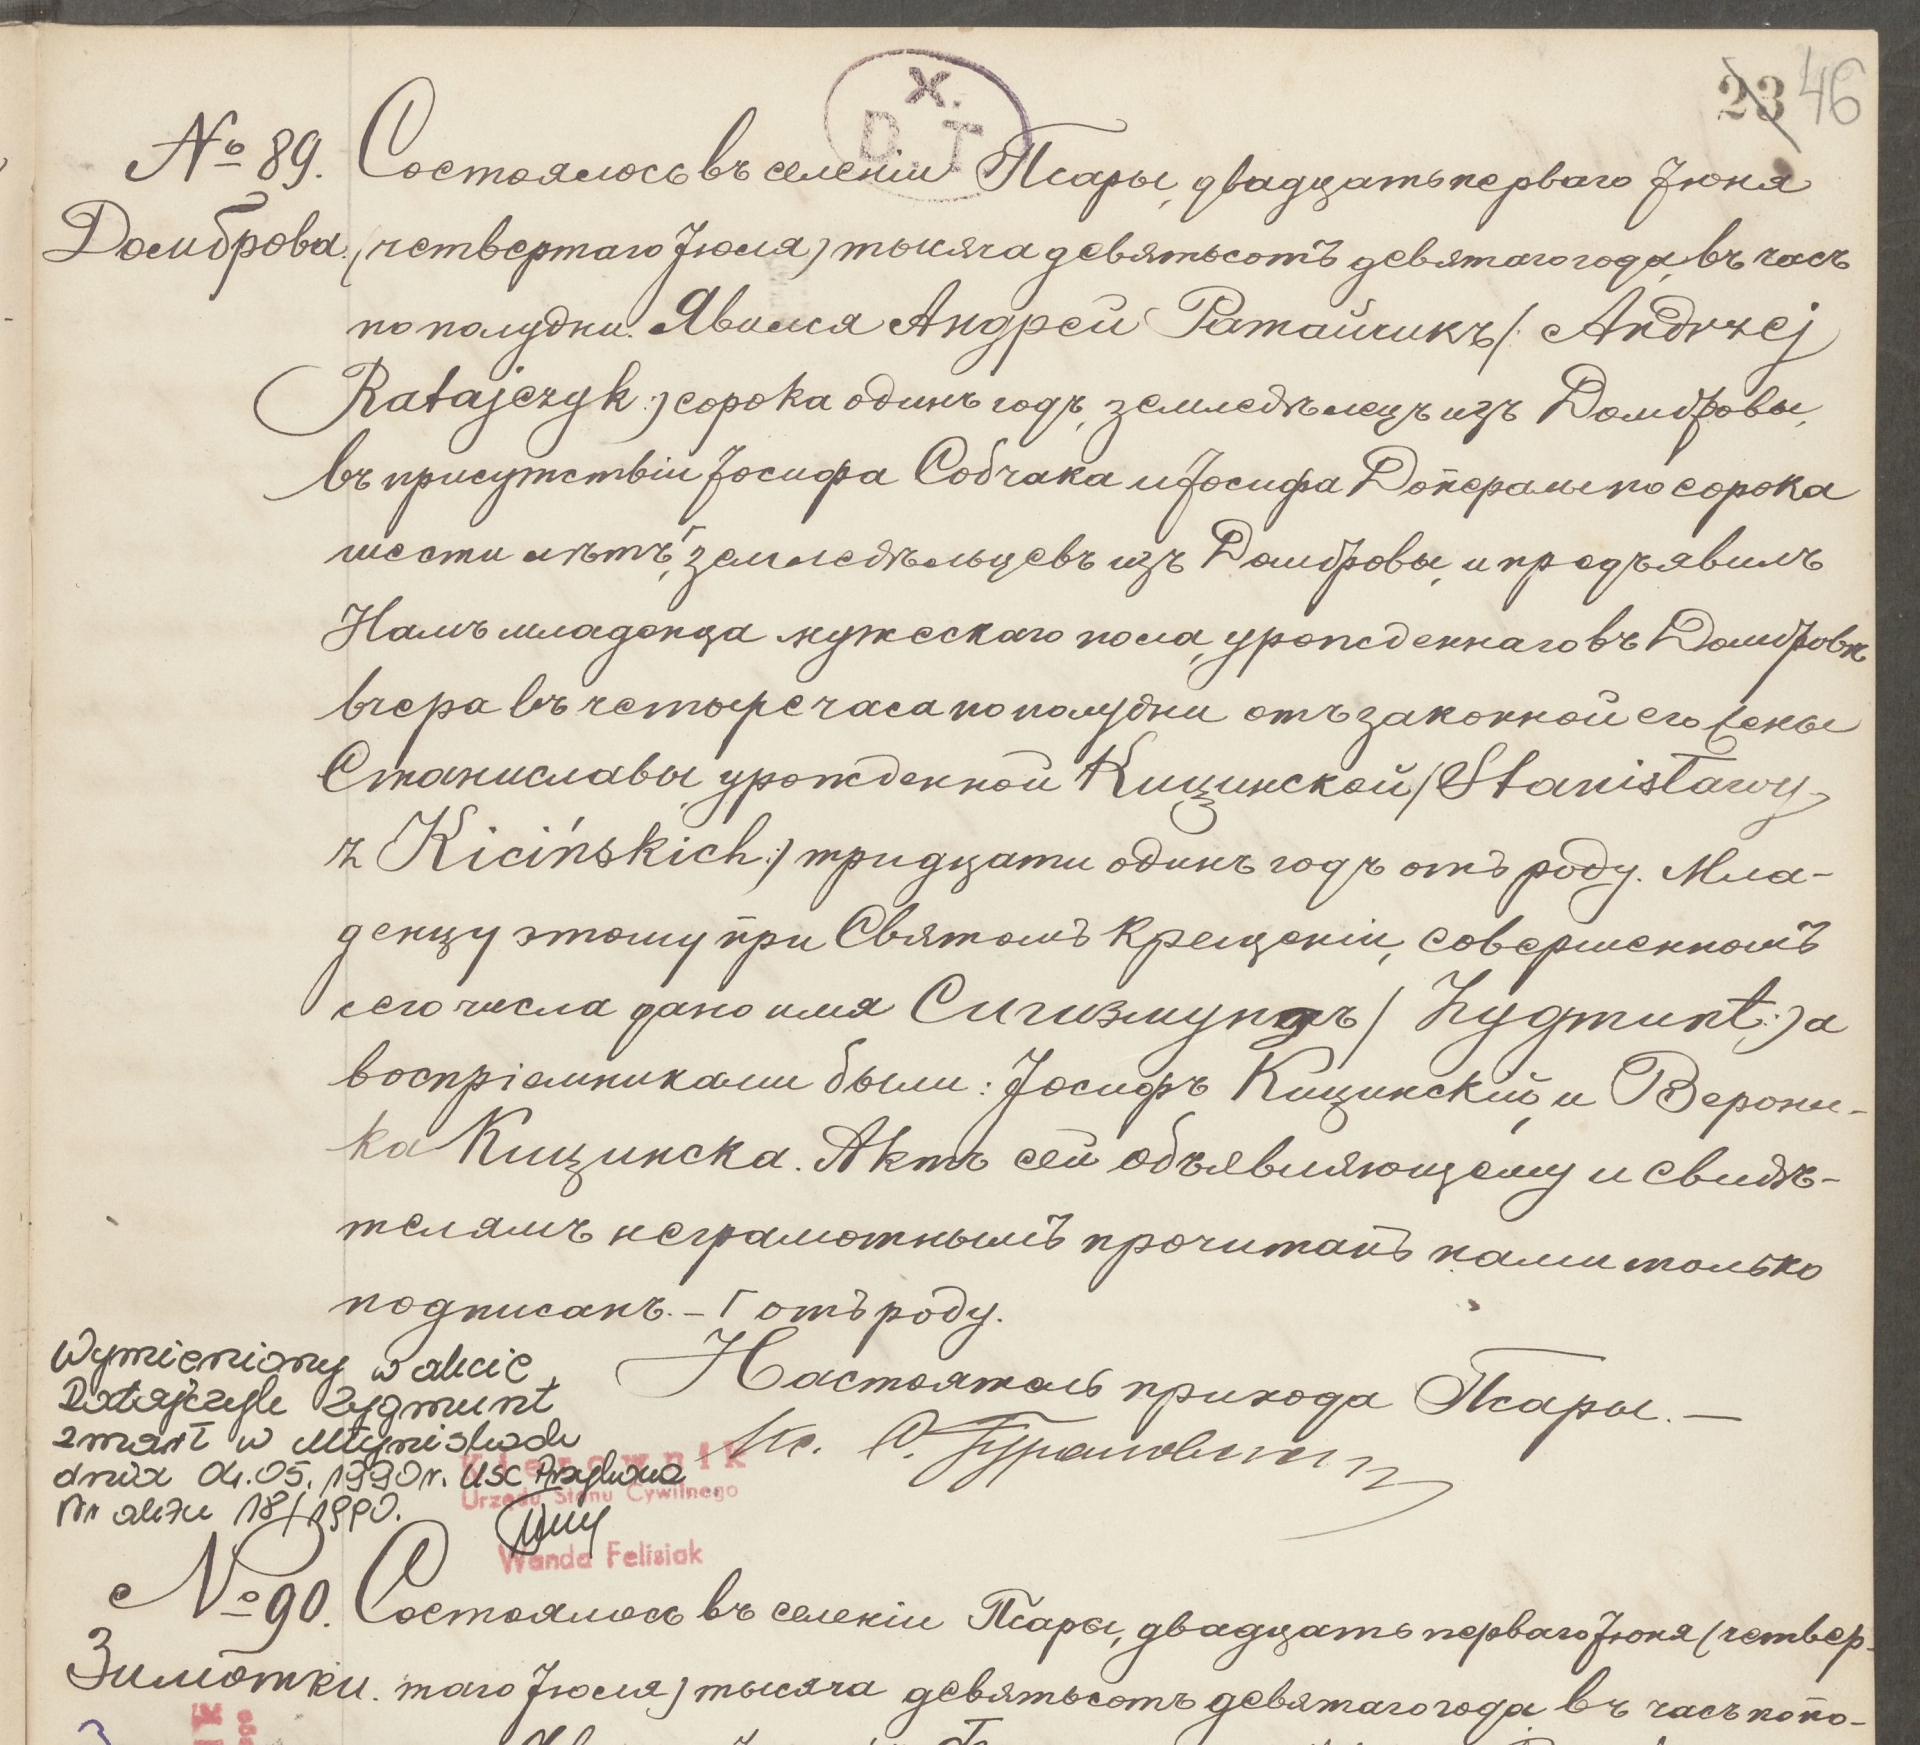 Х.
D T
23 46
№ 89. Состоялось въ селеніи Псары, двадцать перваго Іюня
Домброва. (четвертаго Іюля) тысяча девятьсотъ девятаго года, въ часъ
по полудни. Явился Андрей Ратайчикъ /: Andrzej
Ratajczyk :) сорока одинъ годъ, земледѣлецъ изъ Домбровы,
въ присутствіи Іосифа Собчака и Іосифа Доперали по сорока
шести лѣтъ,Г земледѣльцевъ изъ Домбровы, и предъявилъ
Намъ младенца мужескаго пола, урожденнаго въ Домбровѣ
вчера въ четыре часа по полудни отъ законной его жены
Станиславы урожденной Кицинской /Stanisławy
z Kicińskich :) тридцати одинъ годъ отъ роду. Мла-
денцу этому при Святомъ Крещеніи, совершенномъ
сего числа дано имя Сигизмундъ / Zygmunt :) а
воспріемниками были: Іосифъ Кицинскій, и Верони-
ка Кицинска. Актъ сей объявляющему и свидѣ-
телямъ неграмотнымъ прочитанъ нами только
подписанъ. – Г отъ роду.
Настоятель прихода Псары. —
Кс.
Wymieniony w akcie
Ratajczyk Zygmunt
zmarł w Młynisku
dnia 04.05.1990 r. USC Przykona
Nr aktu 18/1990.
Kierownik
Urzędu Stanu Cywilnego
Wanda Felisiak
№ 90. Состоялось въ селеніи Псары, двадцать перваго Іюня (четвер-
Зимотки. таго Іюля) тысяча девятьсотъ девятаго года въ часъ попо-